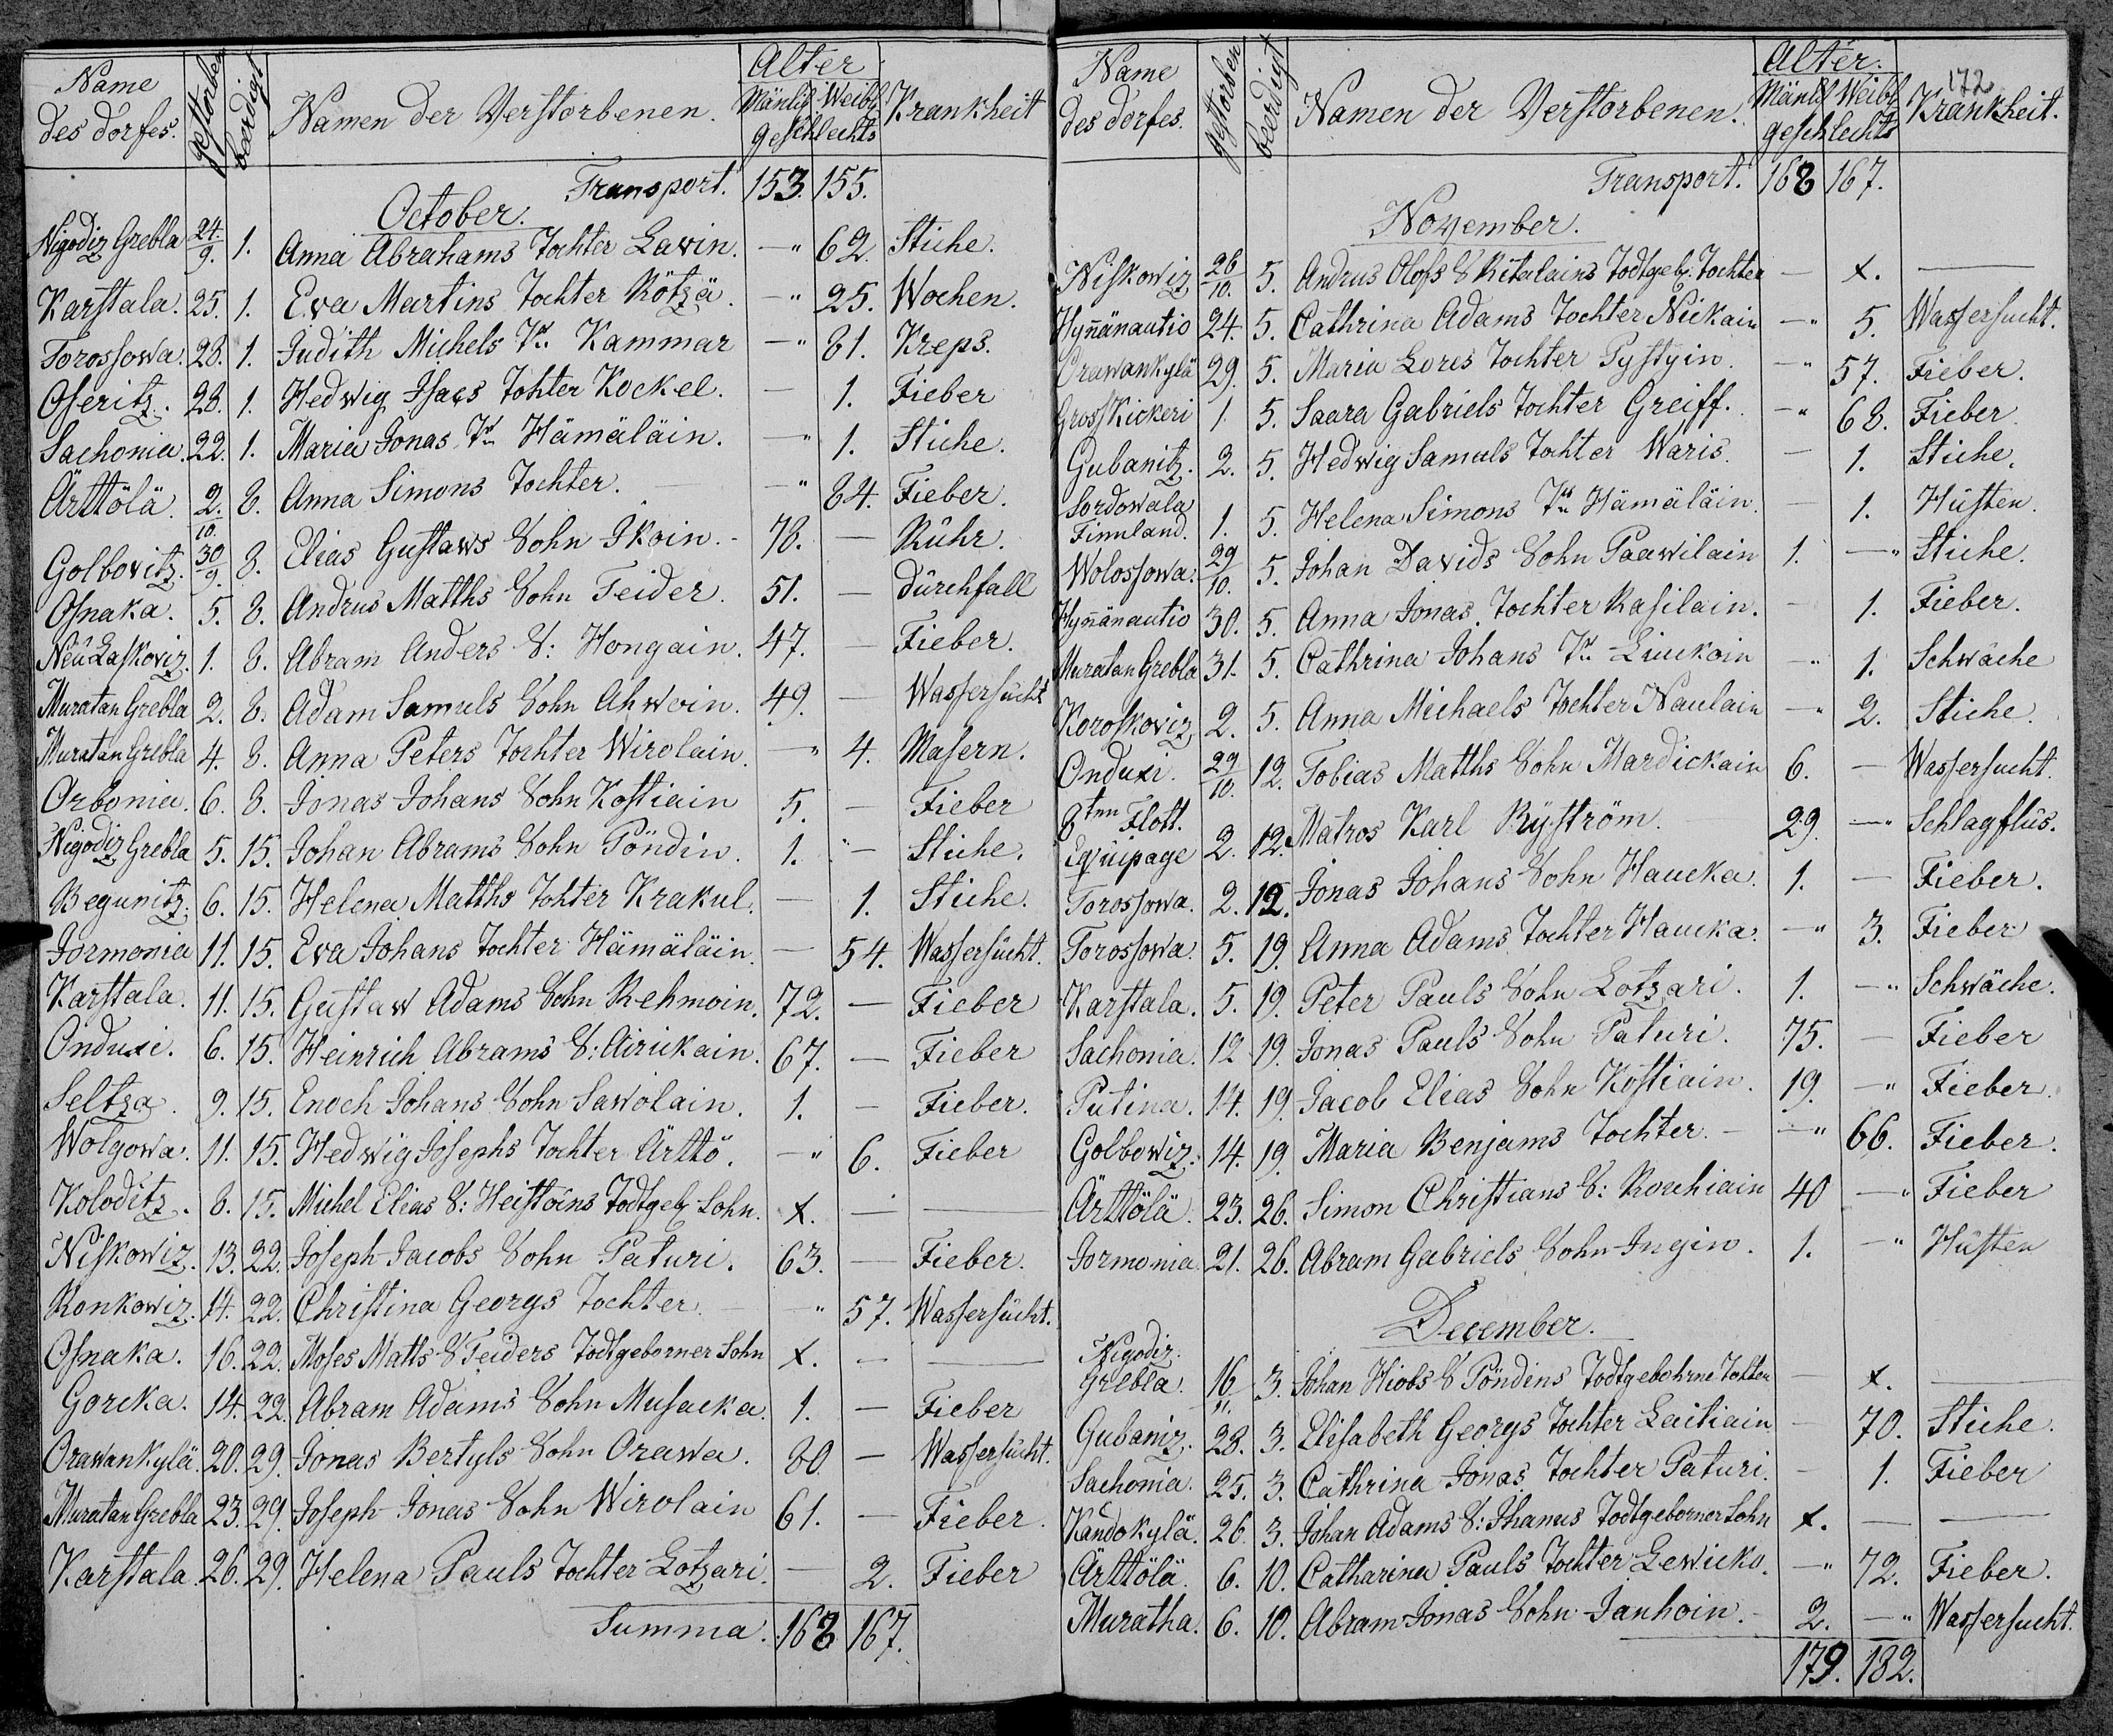 Name des dorfes. gestorben beerdigt Namen der Verstorbenen. Alter Mänlich Weibl. geschlechts Krankheit
Transport. 153. 155.
October.
Nigodiz Grebla 24./9. 1. Anna Abrahams Tochter Lavin. —" 62. Stiche.
Karstala. 25. 1. Eva Martins Tochter Rötzä. —" 25. Wochen.
Torossowa. 28. 1. Judith Michels Tr. Kammar —" 81. Kreps.
Oseritz. 28. 1. Hedwig Isacs Tohter Kockel. — 1. Fieber
Sachonia. 22. 1. Maria Jonas Tr. Hämäläin. —" 1. Stiche.
Ärttölä. 2./10. 8. Anna Simons Tochter. —" 84. Fieber.
Golbovitz. 30/9. 8. Elias Gustaws Sohn Ikoin. - 78. — Rühr.
Osnaka. 5. 8. Andrus Matths Sohn Feider. 51. — Dürchfall
Neü Laskoviz. 1. 8. Abram Anders S: Hongain. 47. — Fieber.
Muratan Grebla 2. 8. Adam Samuls Sohn Ahwoin. 49. — Wassersücht
Muratan Grebla 4. 8. Anna Peters Tochter Wirolain. —" 4. Masern.
Orbonia. 6. 8. Jonas Johans Sohn Kostiain 5. — Fieber
Nigodiz Grebla 5. 15. Johan Abrams Sohn Pöndin. 1. — Stiche.
Begunitz. 6. 15. Helena Matths Tohter Krakul. — 1. Stiche.
Jormonia 11. 15. Eva Johans Tochter Hämäläin. — 54. Wassersücht.
Karstala. 11. 15. Gustaw Adams Sohn Rehmoin. 72. — Fieber
Onduxi. 6. 15. Heinrich Abrams S: Airickain. 67. — Fieber
Seltza. 9. 15. Enoch Johans Sohn Sawolain. 1. — Fieber.
Wolgowa. 11. 15. Hedwig Josephs Tochter Ärttö. —" 6. Fieber
Koloditz. 8. 15. Michel Elias S: Heistoins Todtgeb. Sohn. x. — —
Niskowiz. 13. 22. Joseph Jacobs Sohn Paturi. 63. — Fieber.
Ronkowiz. 14. 22. Christina Georgs Tochter. — " 57. Wassersücht.
Osnaka. 16. 22. Moses Matts S Feiders Todtgeborner Sohn x. — —
Gorcka. 14. 22. Abram Adams Sohn Musacka. 1. — Fieber
Orawankylä. 20. 29. Jonas Bertyls Sohn Orawa. 80. — Wassersücht.
Muratan Grebla 23. 29. Joseph Jonas Sohn Wirolain 61. — Fieber.
Karstala. 26. 29. Helena Pauls Tochter Lotzari. — 2. Fieber
Summa. 168 167.
172
Name des dorfes. gestorben beerdigt Namen der Verstorbenen. Alter. Mänlich Weibl. geschlechts Krankheit.
Transport. 168 167.
November.
Niskowiz 26/10. 5. Andrus Olofs S Ritalains Todtgeb. Tochter — x. —
Hynnänautio 24. 5. Cathrina Adams Tochter Nickain —" 5. Wassersucht.
Orawankylä 29. 5. Maria Lores Tochter Pystyin. —" 57. Fieber.
Gross Kickeri 1 5. Saara Gabriels Tochter Greiff. —" 68. Fieber.
Gubanitz. 2. 5. Hedwig Samuls Tohter Waris. — 1. Stiche.
Sordowala
Finnland. 1. 5. Helena Simons Tr. Hämäläin. — 1. Hüsten.
Wolossowa. 29/10. 5. Johan Davids Sohn Paawilain 1. —" Stiche.
Hynnänautio 30. 5. Anna Jonas Tochter Kasilain. - 1. Fieber.
Muratan Grebla 31. 5. Cathrina Johans Tr. Liuckoin —" 1. Schwäche
Koroskoviz 2. 5. Anna Michaels Tochter Naulain —" 2. Stiche.
Onduxi. 29/10. 12. Tobias Matths Sohn Mardickain 6. — Wassersucht.
8ten Flott.
Eqvipage 2. 12. Matros Karl Ryström. 29. —" Schlagflus.
Torossowa. 2. 12. Jonas Johans Sohn Haucka. 1. — Fieber.
Torossowa. 5. 19. Anna Adams Tochter Haucka. —" 3. Fieber
Karstala. 5. 19. Peter Pauls Sohn Lotzari. 1. —" Schwäche.
Sachonia. 12 19. Jonas Pauls Sohn Paturi. 75. — Fieber
Putina. 14. 19. Jacob Elias Sohn Kostiain. 19. —" Fieber.
Golbowiz. 14. 19. Maria Benjams Tochter. — —" 66. Fieber.
Ärttölä. 23. 26. Simon Christians S: Rouhiain 40 —" Fieber
Jormonia. 21. 26. Abram Gabriels Sohn Ingin. 1. —" Hüsten
December.
Nigodiz.
Grebla. 16/11. 3. Johan Hiobs S Pöndins Todtgebohrne Tohter — x. —
Gubaniz. 28. 3. Elisabeth Georgs Tohter Laitiain — 70. Stiche.
Sachonia. 25. 3. Cathrina Jonas Tochter Paturi. — 1. Fieber
Kandokylä. 26. 3. Johan Adams S: Ihanus Todtgeborner Sohn x. — —
Ärttölä. 6. 10. Catharina Pauls Tochter Lewicko. —" 72. Fieber.
Muratha. 6. 10. Abram Jonas Sohn Janhoin. - 2. —" Wassersucht.
179. 182.